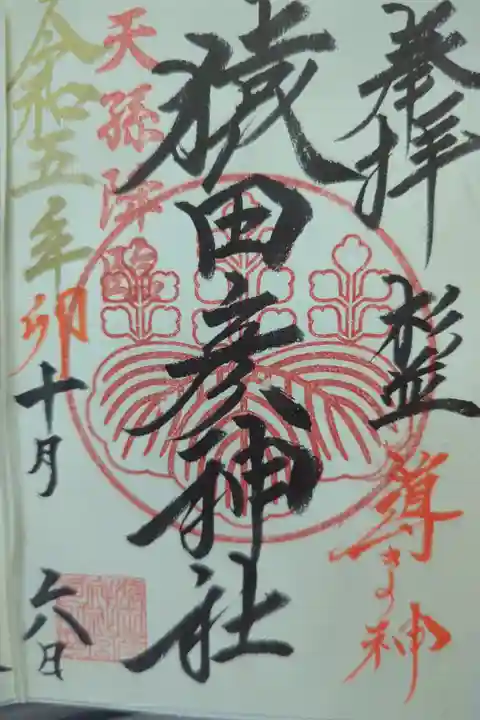 奉拝
杉並
導きの神
猿田彦神社
天孫降臨
令和五年
卯
十月
六日